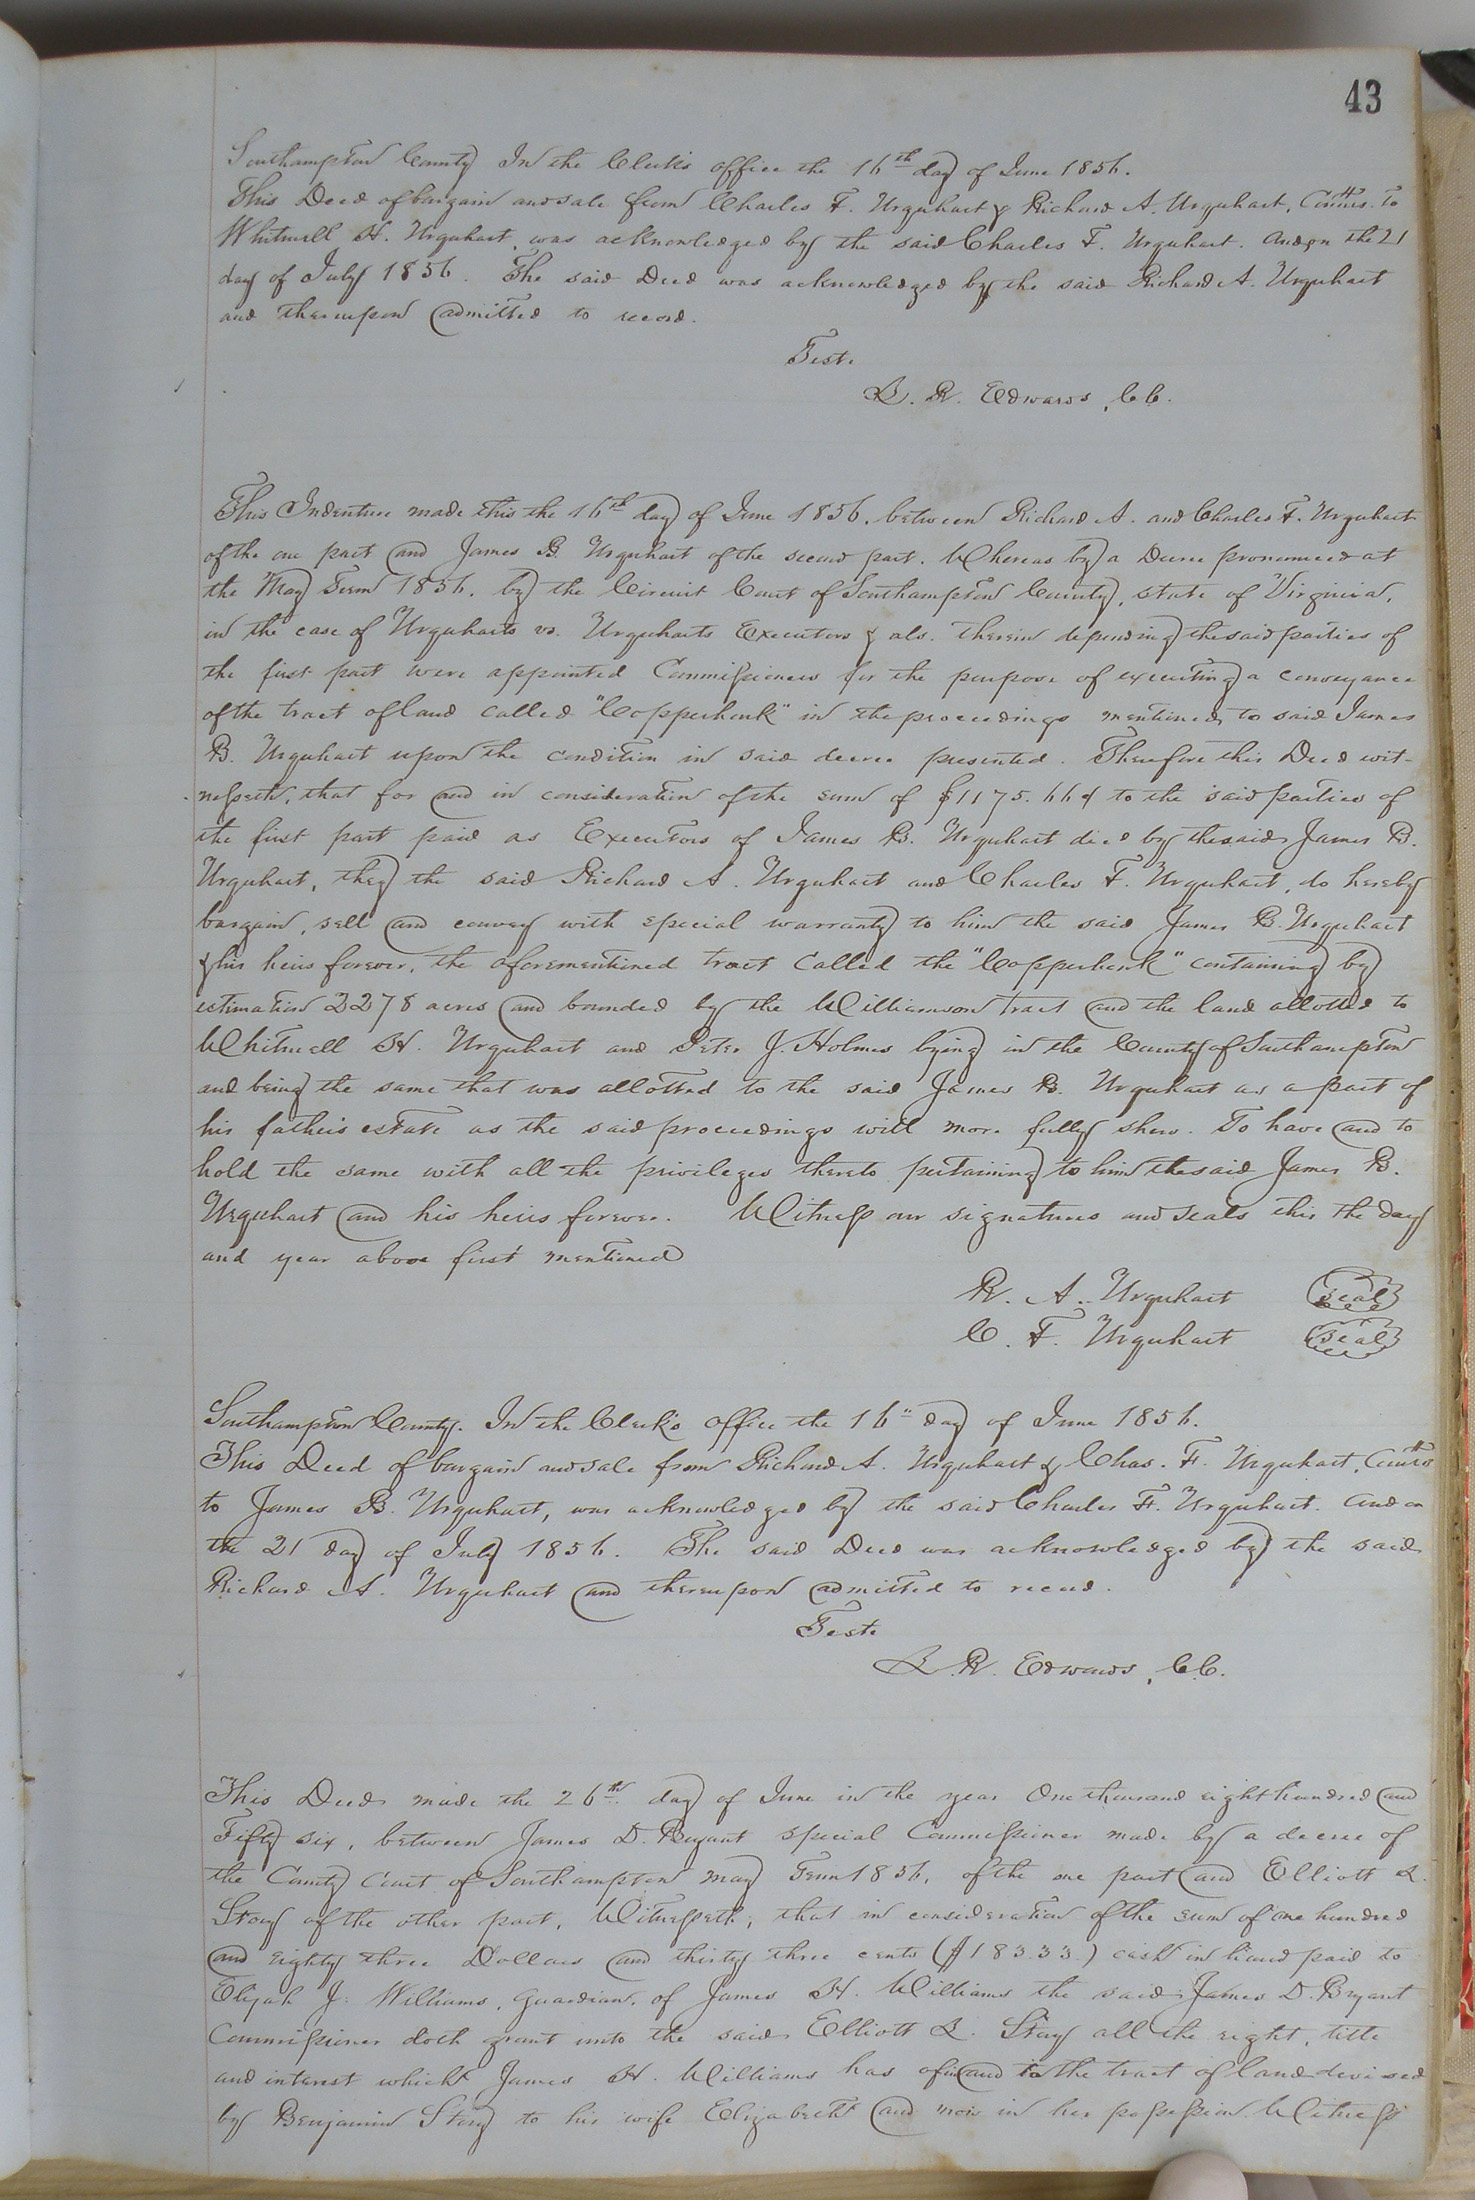 43
Southampton County In the Clerk's office the 16th day of June 1856.
This Deed of bargain and sale from Charles F. Urquhart & Richard A. Urquhart, Comrs. to
Whitmell H. Urquhart, was acknowledged by the said Charles F. Urquhart. And on the 21
day of July 1856. The said Deed was acknowledged by the said Richard A. Urquhart
and thereupon admitted to record.
Teste
L. R. Edwards, C.C.
This Indenture made this the 16th day of June 1856. between Richard A. and Charles F. Urquhart
of the one part and James B. Urquhart of the second part. Whereas by a Decree pronounced at
the May Term 1856. by the Circuit Court of Southampton County, state of Virginia,
in the case of Urquharts vs. Urquharts Executors & als. therein depending the said parties of
the first part were appointed Commissioners for the purpose of executing a conveyance
of the tract of land called "Copperhonk" in the proceedings mentioned to said James
B. Urquhart upon the condition in said decree presented. Therefore this Deed wit-
nesseth, that for and in consideration of the sum of $1175.66 ¢ to the said parties of
the first part paid as Executors of James B. Urquhart died by the said James B.
Urquhart, they the said Richard A. Urquhart and Charles F. Urquhart, do hereby
bargain, sell and convey with special warranty to him the said James B. Urquhart
& his heirs forever, the aforementioned tract called the "Copperhonk" containing by
estimation 2278 acres and bounded by the Williamson tract and the land allotted to
Whitmell H. Urquhart and Peter J. Holmes lying in the County of Southampton
and being the same that was allotted to the said James B. Urquhart as a part of
his fathers estate as the said proceedings will more fully show. To have and to
hold the same with all the privileges thereto pertaining to him the said James B.
Urquhart and his heirs forever. Witness our signatures and seals this the day
and year above first mentioned
R. A. Urquhart seal
C. F. Urquhart seal
Southampton County. In the Clerk's Office the 16th day of June 1856.
This Deed of bargain and sale from Richard A. Urquhart & Chas. F. Urquhart, Comrs
to James B. Urquhart, was acknowledged by the said Charles F. Urquhart. And on
the 21 day of July 1856. The said Deed was acknowledged by the said
Richard A. Urquhart and thereupon admitted to record.
Teste
L. R. Edwards, C.C.
This Deed made the 26th day of June in the year One thousand eight hundred and
Fifty six, between James D. Bryant special Commissioner made by a decree of
the County Court of Southampton May Term 1856, of the one part and Elliott L.
Story of the other part, Witnesseth, that in consideration of the sum of one hundred
and eighty three Dollars and thirty three cents ($183.33.) cash in hand paid to
Elijah J. Williams, guardian, of James H. Williams the said James D. Bryant
Commissioner doth grant unto the said Elliott L. Story all the right, title
and interest which James H. Williams has of in and to the tract of land devised
by Benjamin Story to his wife Elizabeth and now in her possession. Witness